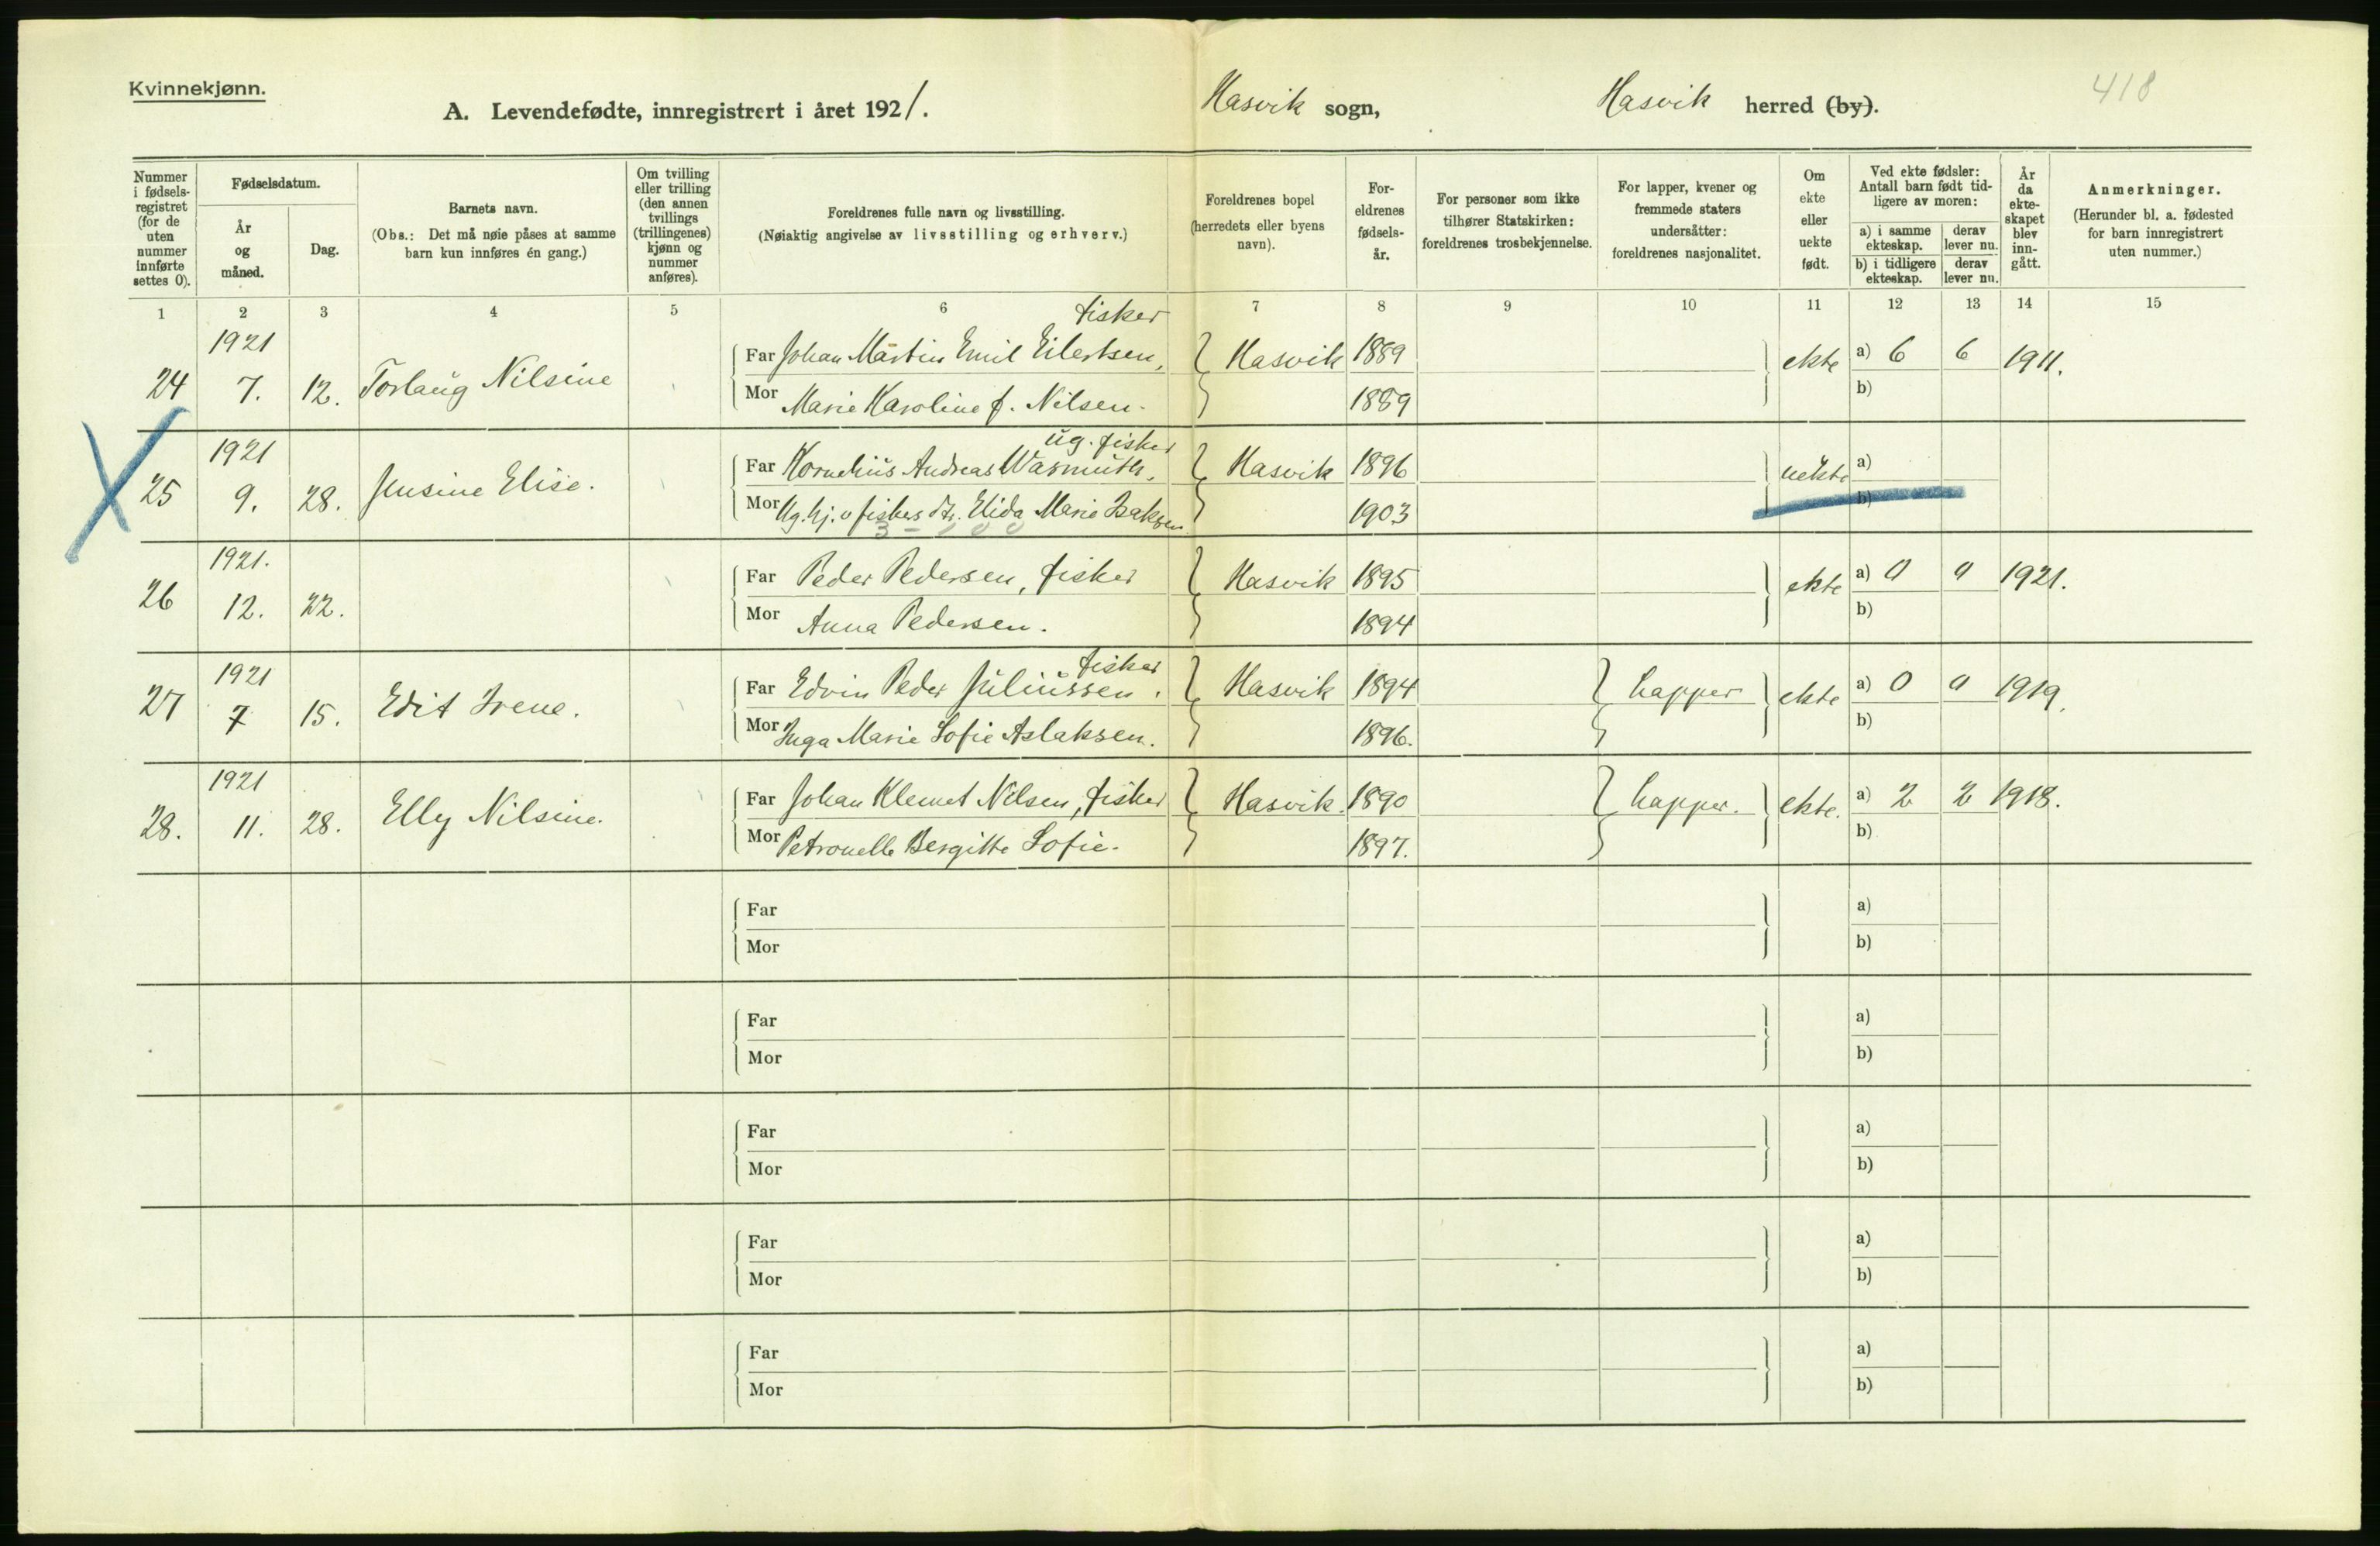 Kvinnekjønn.
A. Levendefødte, innregistrert i året 1921.
Hasvik sogn, Hasvik herred (by).
418
Nummer i fødselsregistret (for de uten nummer innførte settes 0).
Fødselsdatum.
År og måned.
Dag.
Barnets navn.
(Obs.: Det må nøie påses at samme barn kun innføres én gang.)
Om tvilling eller trilling (den annen tvillings (trillingenes) kjønn og nummer anføres).
Foreldrenes fulle navn og livsstilling.
(Nøiaktig angivelse av livsstilling og erhverv.)
Foreldrenes bopel (herredets eller byens navn).
Foreldrenes fødselsår.
For personer som ikke tilhører Statskirken: foreldrenes trosbekjennelse.
For lapper, kvener og fremmede staters undersåtter: foreldrenes nasjonalitet.
Om ekte eller uekte født.
Ved ekte fødsler: Antall barn født tidligere av moren:
a) i samme ekteskap. derav lever nu.
b) i tidligere ekteskap. derav lever nu.
År da ekteskapet blev inngått.
Anmerkninger.
(Herunder bl. a. fødested for barn innregistrert uten nummer.)
1 2 3 4 5 6 7 8 9 10 11 12 13 14 15
fisker
24 1921 7. 12. Torlaug Nilsine Far Johan Martin Emil Eilertsen, Hasvik 1889 ekte a) 6 6 1911.
Mor Marie Karoline f. Nilsen. 1889 b)
ug. fisker
25 1921 9. 28. Jensine Elise. Far Kornelius Andreas Wasmuth, Hasvik 1896 uekte a)
Mor Ug. hj. v fisker dtr. Elida Marie Isaksen 1903 b)
26 1921. 12. 22. Far Peder Pedersen, fisker Hasvik 1895 ekte a) 0 0 1921.
Mor Anna Pedersen. 1894 b)
fisker
27 1921 7 15. Edit Irene. Far Edvin Peder Juliussen. Hasvik 1894 Lapper ekte a) 0 0 1919.
Mor Inga Marie Sofie Aslaksen. 1896. b)
28. 1921 11. 28. Elly Nilsine. Far Johan Klemet Nilsen, fisker Hasvik. 1890 Lapper. ekte. a) 2 2 1918.
Mor Petronelle Bergitte Sofie. 1897. b)
Far a)
Mor b)
Far a)
Mor b)
Far a)
Mor b)
Far a)
Mor b)
Far a)
Mor b)